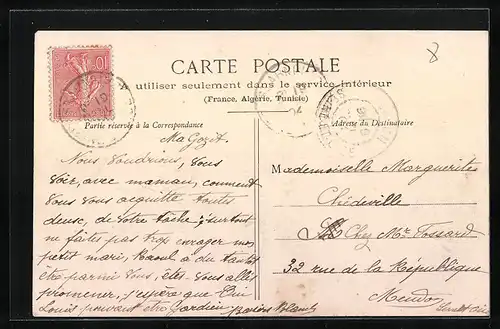 CARTE POSTALE
à utiliser seulement dans le service intérieur
(France, Algérie, Tunisie)
Partie réservée à la Correspondance
Adresse du Destinataire
10
8
Ma Gozit.
Nous voudrions, vous
voir, avec maman, comment
vous vous acquitte toutes
deux, de votre tâche, surtout
ne faites pas trop enrager mon
petit mari, Raoul a du
être parmi vous, êtes-vous allés
promener, j'espère que
Louis pouvant être Gardien
Mademoiselle Marguerite
Chédeville
Chez Mr Fossard
32 rue de la République
Meudon
Seine et Oise